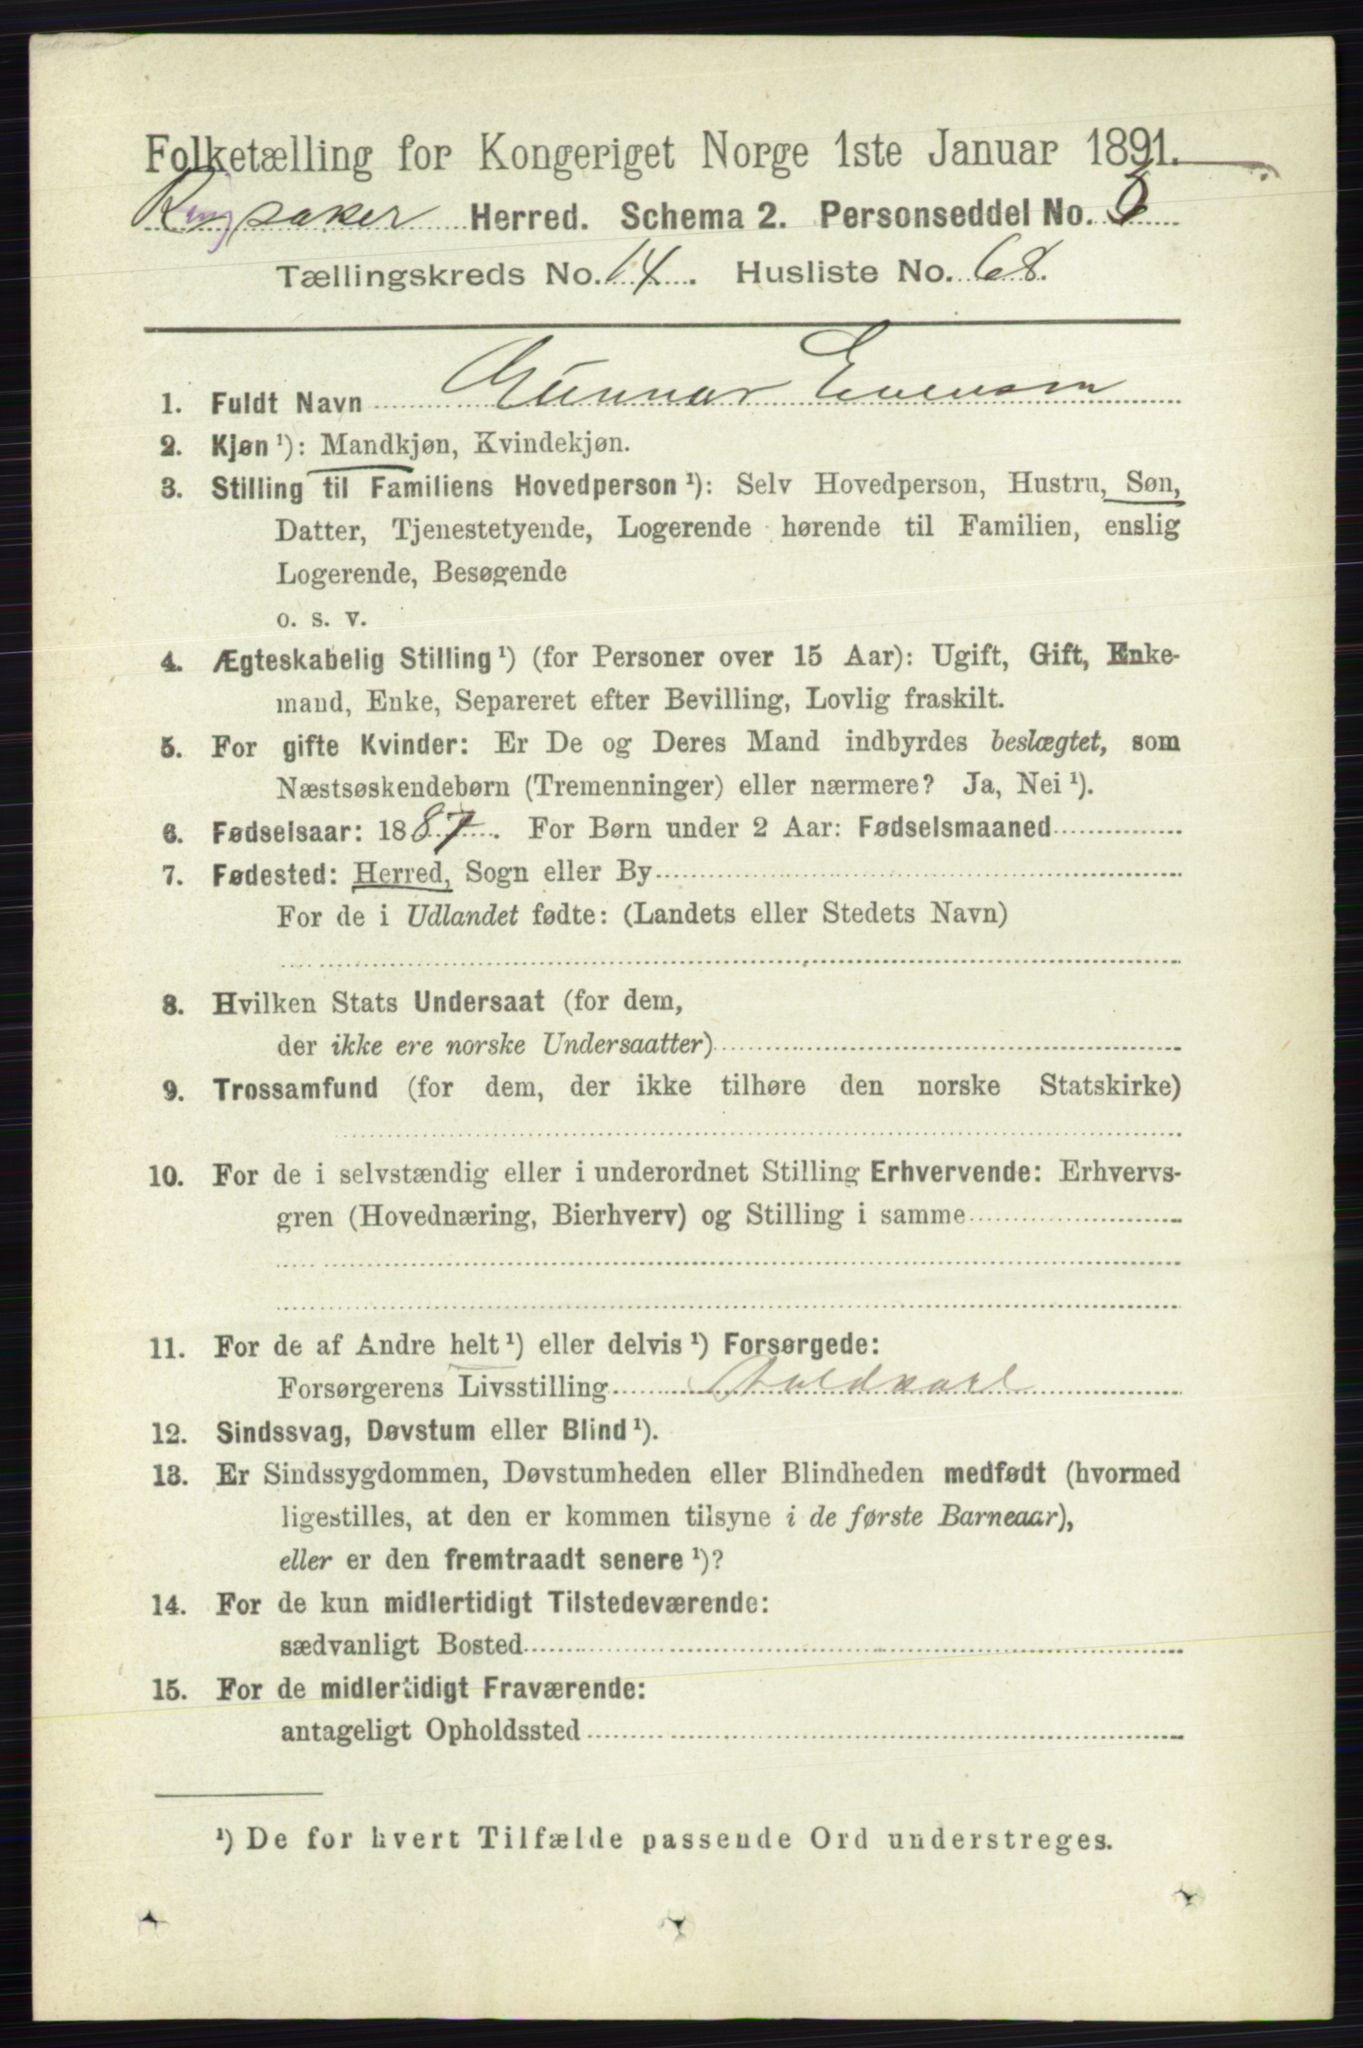 Folketælling for Kongeriget Norge 1ste Januar 1891.
Ringsaker Herred. Schema 2. Personseddel No. 3
Tællingskreds No. 14. Husliste No. 68.
1. Fuldt Navn Gunnar Evensen
2. Kjøn ¹): Mandkjøn, Kvindekjøn.
3. Stilling til Familiens Hovedperson ¹): Selv Hovedperson, Hustru, Søn,
Datter, Tjenestetyende, Logerende hørende til Familien, enslig
Logerende, Besøgende
o. s. v.
4. Ægteskabelig Stilling ¹) (for Personer over 15 Aar): Ugift, Gift, Enke-
mand, Enke, Separeret efter Bevilling, Lovlig fraskilt.
5. For gifte Kvinder: Er De og Deres Mand indbyrdes beslægtet, som
Næstsøskendebørn (Tremenninger) eller nærmere? Ja, Nei ¹).
6. Fødselsaar: 1887. For Børn under 2 Aar: Fødselsmaaned
7. Fødested: Herred, Sogn eller By
For de i Udlandet fødte: (Landets eller Stedets Navn)
8. Hvilken Stats Undersaat (for dem,
der ikke ere norske Undersaatter)
9. Trossamfund (for dem, der ikke tilhøre den norske Statskirke)
10. For de i selvstændig eller i underordnet Stilling Erhvervende: Erhvervs-
gren (Hovednæring, Bierhverv) og Stilling i samme
11. For de af Andre helt ¹) eller delvis ¹) Forsørgede:
Forsørgerens Livsstilling Staldkarl
12. Sindssvag, Døvstum eller Blind ¹).
13. Er Sindssygdommen, Døvstumheden eller Blindheden medfødt (hvormed
ligestilles, at den er kommen tilsyne i de første Barneaar),
eller er den fremtraadt senere ¹)?
14. For de kun midlertidigt Tilstedeværende:
sædvanligt Bosted
15. For de midlertidigt Fraværende:
antageligt Opholdssted
¹) De for hvert Tilfælde passende Ord understreges.